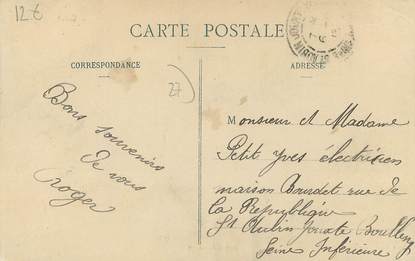 12€
CARTE POSTALE
CORRESPONDANCE
ADRESSE
27
Bons souvenirs
de vous
Roger
Monsieur et Madame
Petit Yves électricien
maison Bourdet rue de
la République
St Aubin-Jouxte Boulleng
Seine Inférieure